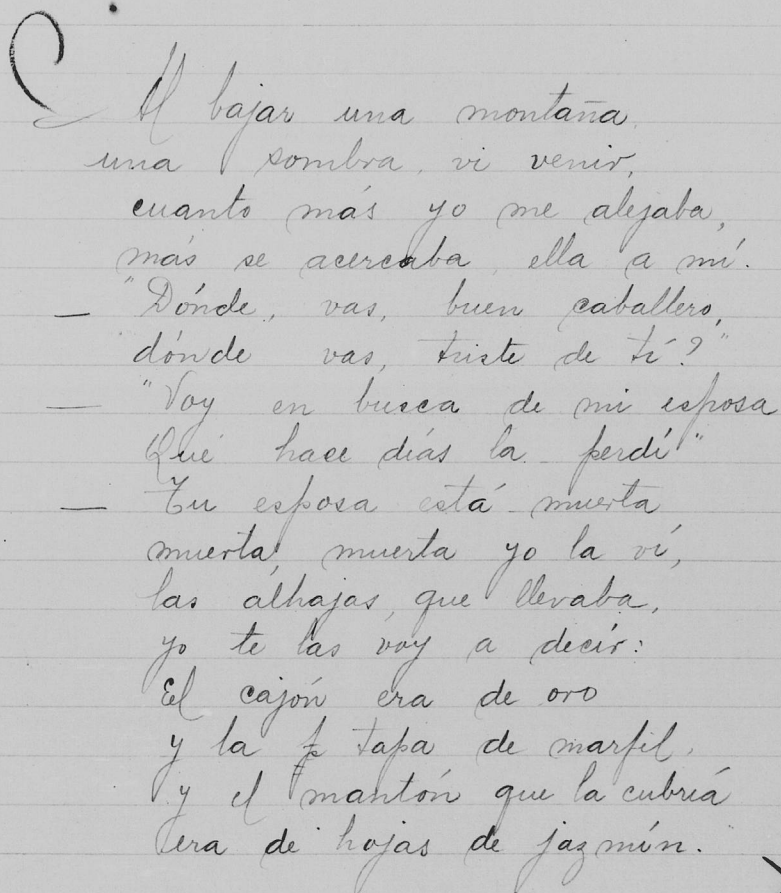 Al bajar una montaña
una sombra, vi venir,
cuanto más yo me alejaba,
más se acercaba, ella a mí.
— "Dónde, vas, buen caballero,
dónde vas, triste de tí?"
— "Voy en busca de mi esposa
Qué hace diás la perdí"
— Tu esposa está muerta
muerta, muerta yo la ví,
las alhajas, que llevaba,
yo te las voy a decír:
El cajón era de oro
y la tapa de marfil,
y el mantón que la cubriá
era de hojas de jazmín."